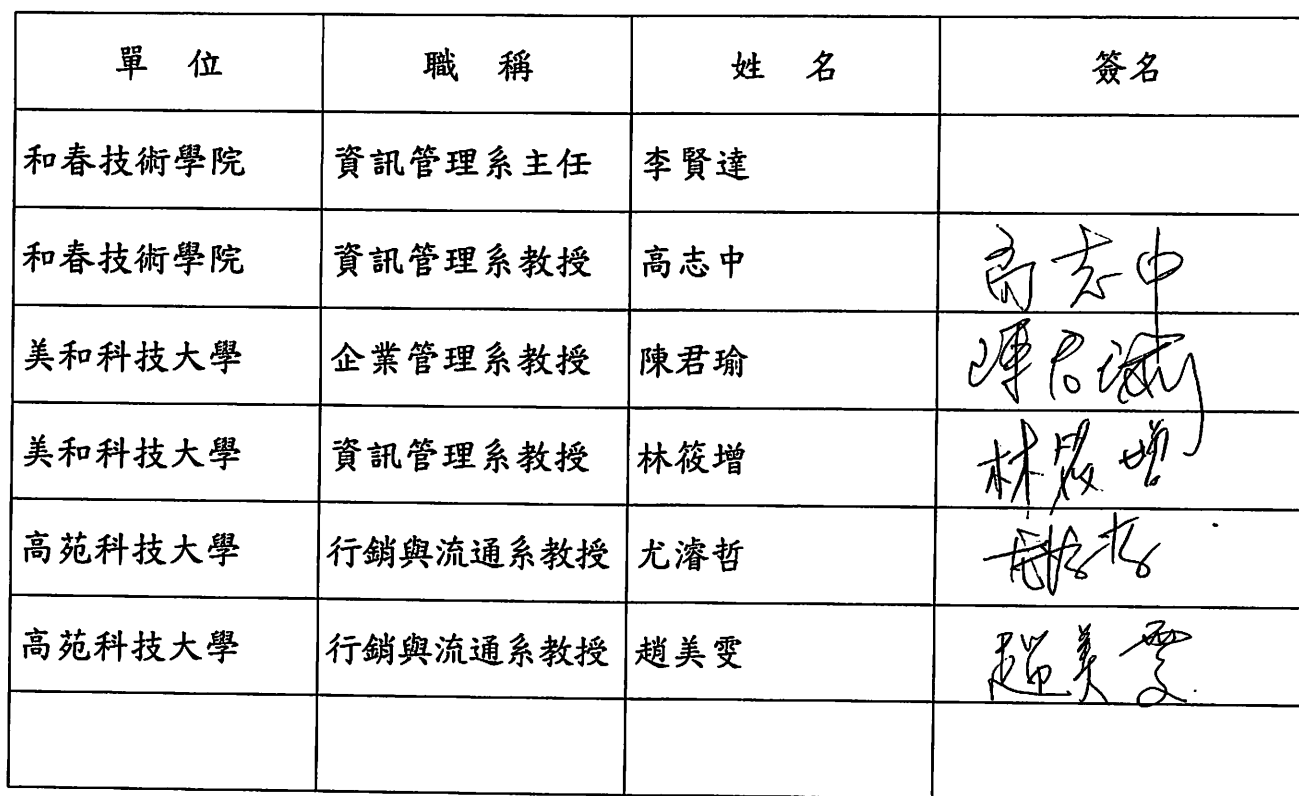 單 位 職 稱 姓 名 簽名
和春技術學院 資訊管理系主任 李賢達
和春技術學院 資訊管理系教授 高志中 高志中
美和科技大學 企業管理系教授 陳君瑜 陳君瑜
美和科技大學 資訊管理系教授 林筱增 林筱增
高苑科技大學 行銷與流通系教授 尤濬哲
高苑科技大學 行銷與流通系教授 趙美雯 趙美雯